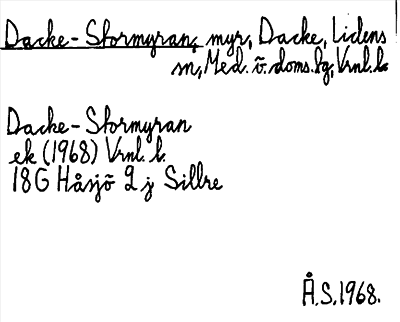 Dacke-Stormyran, myr, Dacke, Lidens
sn, Med. ö. doms.sg, Vrnl. l.
Dacke-Stormyran
ek (1968) Vrnl. l.
18G Håsjö 2 j Sillre
Å.S. 1968.